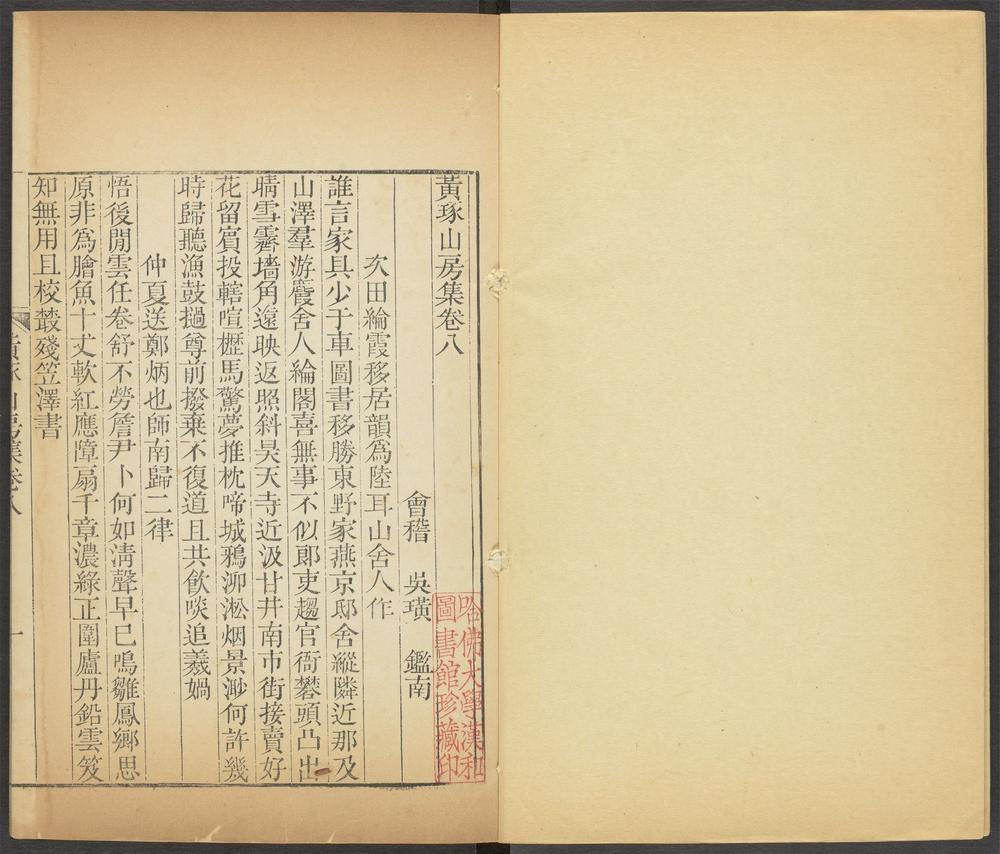 黃琢山房集卷八
會稽　吳璜　鑑南
次田綸霞移居韻爲陸耳山舍人作
誰言家具少于車圖書移勝東野家燕京邸舍縱隣近那及
山澤羣游麏舍人綸閣喜無事不似郎吏趨官衙礬頭凸出
晴雪霽墻角遠映返照斜昊天寺近汲甘井南市街接賣好
花留賓投轄喧櫪馬驚夢推枕啼城鴉泖淞烟景渺何許幾
時歸聽漁鼓撾尊前撥棄不復道且共飮啖追羲媧
仲夏送鄭炳也師南歸二律
悟後閒雲任卷舒不勞詹尹卜何如淸聲早已鳴雛鳳鄉思
原非爲膾魚十丈軟紅應障扇千章濃綠正圍廬丹鉛雲笈
知無用且校叢殘笠澤書
黃琢山房集卷八
一
哈佛大學漢和
圖書館珍藏印